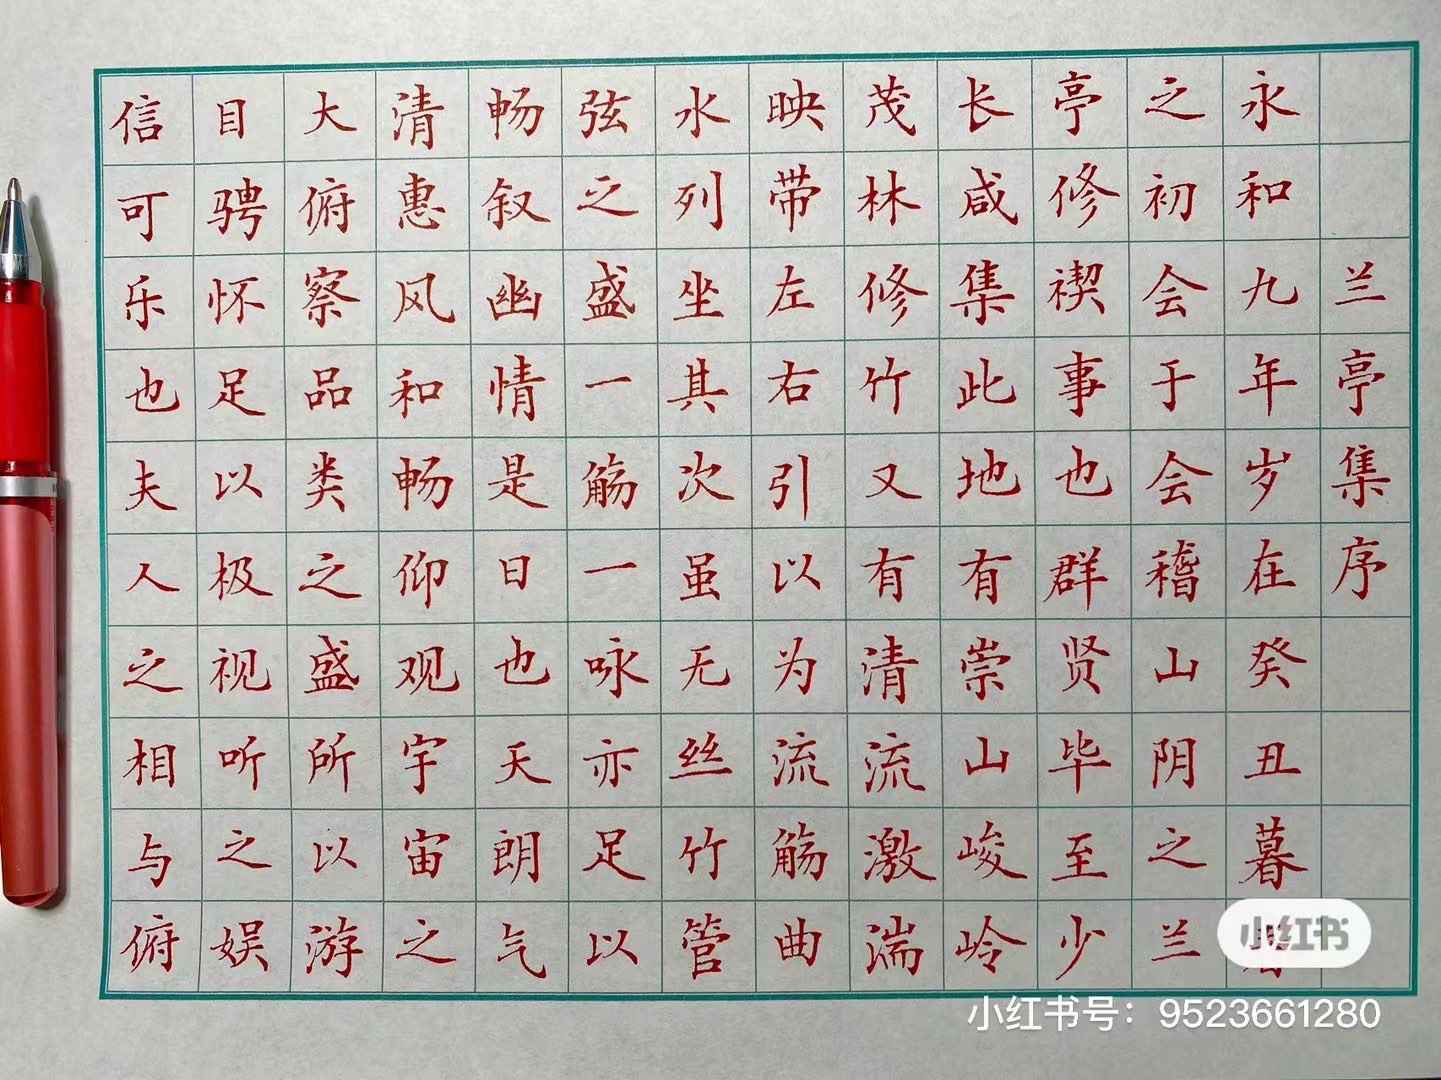 兰亭集序
永和九年岁在癸丑暮
之初会于会稽山阴之兰
亭修禊事也群贤毕至少
长咸集此地有崇山峻岭
茂林修竹又有清流激湍
映带左右引以为流觞曲
水列坐其次虽无丝竹管
弦之盛一觞一咏亦足以
畅叙幽情是日也天朗气
清惠风和畅仰观宇宙之
大俯察品类之盛所以游
目骋怀足以极视听之娱
信可乐也夫人之相与俯
小红书
小红书号：9523661280